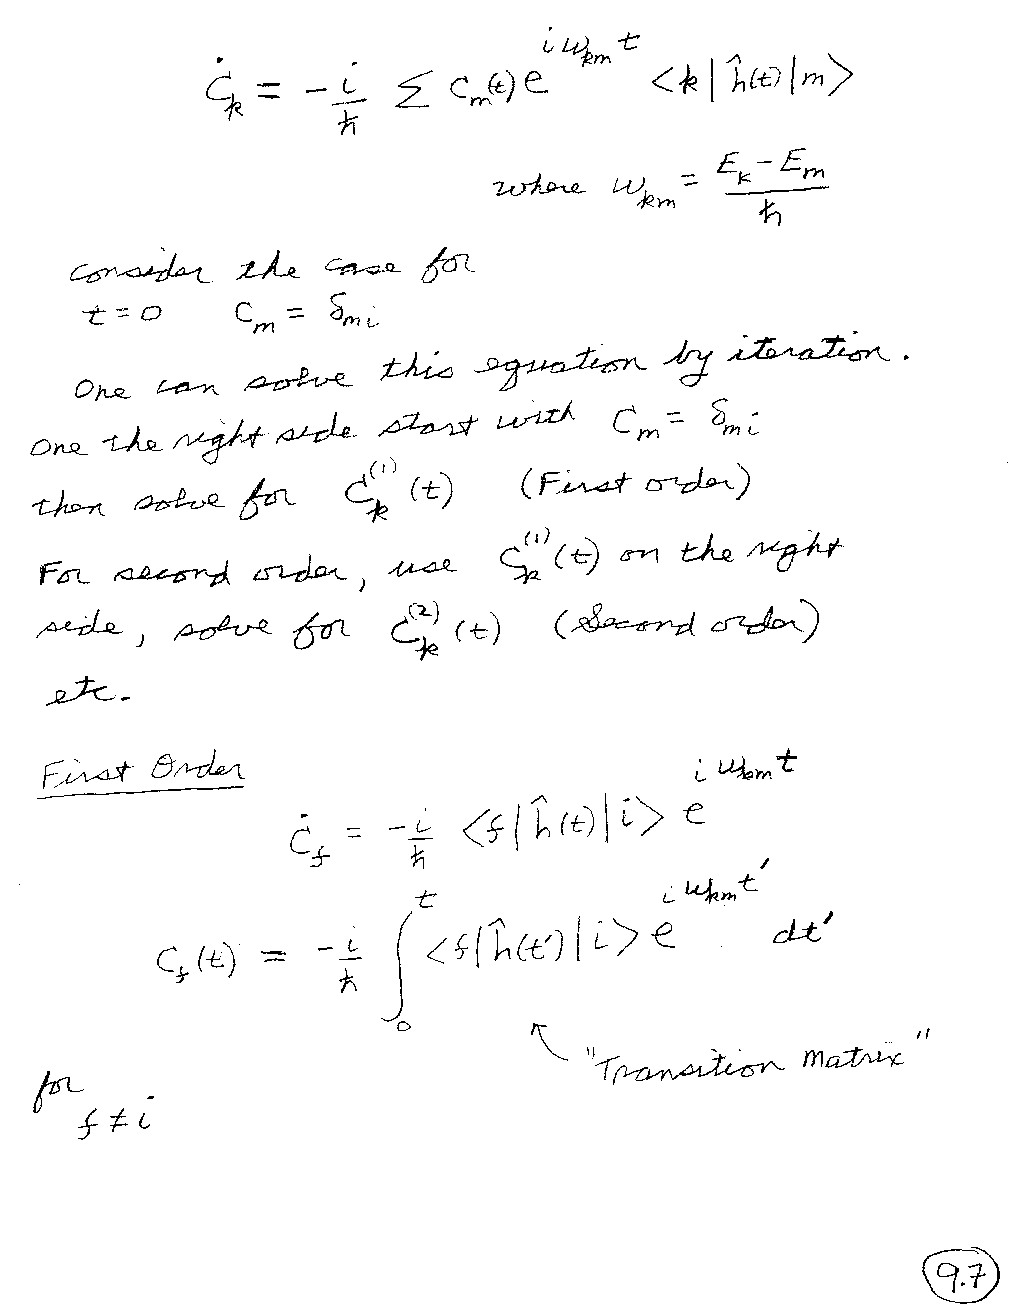 Ċ_k = -i/ħ Σ C_m(t) e^{iω_{km}t} <k|ĥ(t)|m>
where ω_{km} = (E_k - E_m)/ħ
consider the case for
t=0 C_m = δ_{mi}
One can solve this equation by iteration.
One the right side start with C_m = δ_{mi}
then solve for C_k^{(1)}(t) (First order)
For second order, use C_k^{(1)}(t) on the right
side, solve for C_k^{(2)}(t) (Second order)
etc.
First Order
Ċ_f = -i/ħ <f|ĥ(t)|i> e^{iω_{km}t}
C_f(t) = -i/ħ ∫_0^t <f|ĥ(t')|i> e^{iω_{km}t'} dt'
"Transition Matrix"
for
f ≠ i
9.7